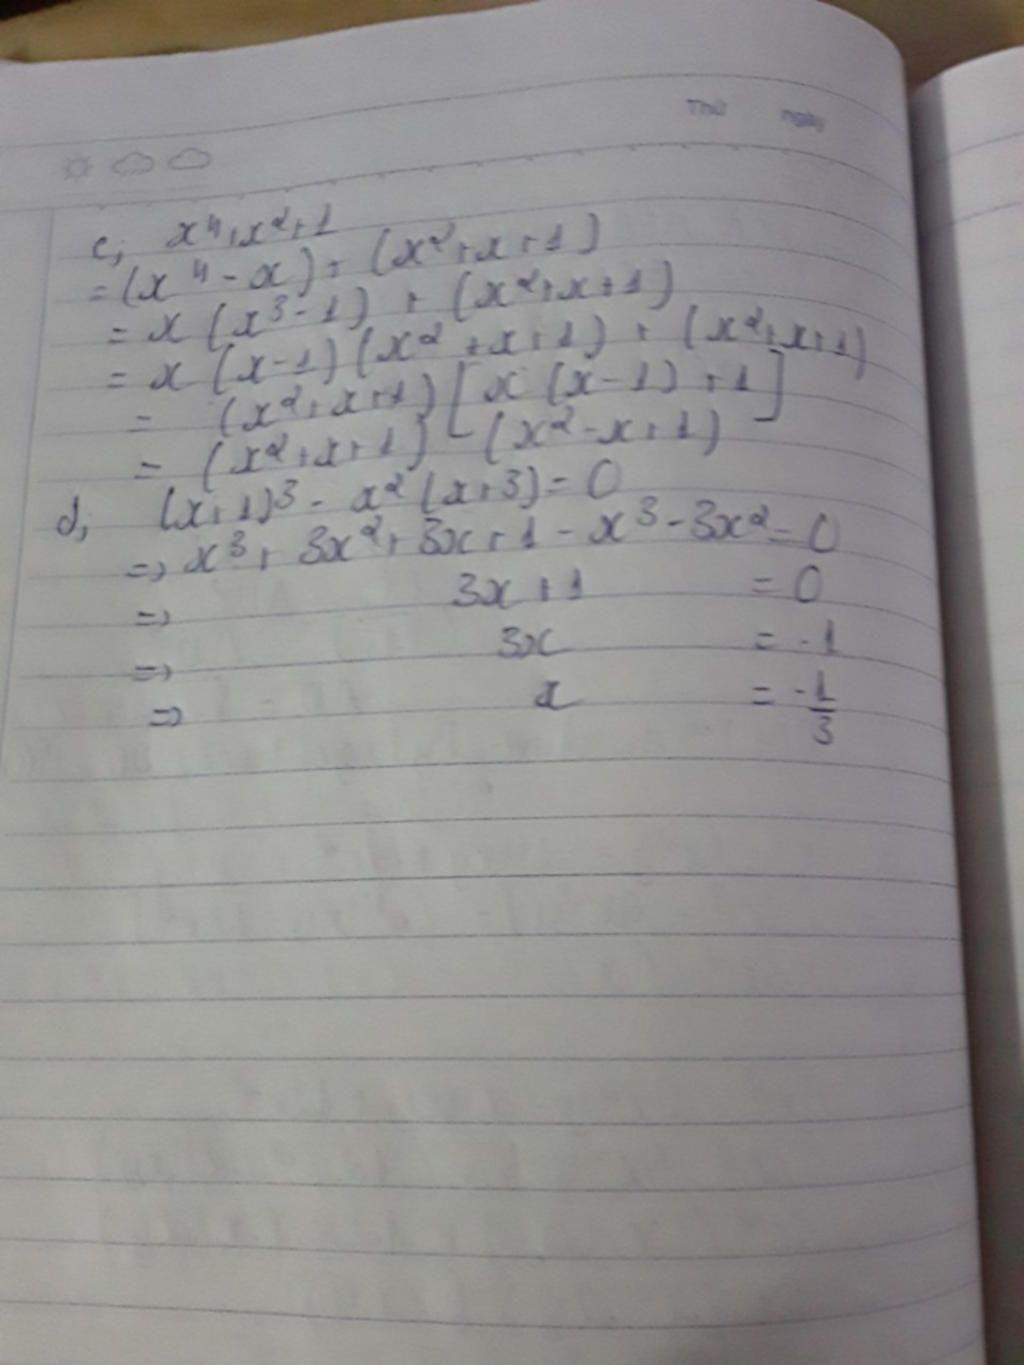 Thứ ngày
c, x⁴+x²+1
= (x⁴-x) + (x²+x+1)
= x (x³-1) + (x²+x+1)
= x (x-1) (x²+x+1) + (x²+x+1)
= (x²+x+1) [x (x-1) +1]
= (x²+x+1) (x²-x+1)
d, (x+1)³ - x² (x+3) = 0
=> x³ + 3x² + 3x + 1 - x³ - 3x² = 0
=> 3x + 1 = 0
=> 3x = -1
=> x = -1/3